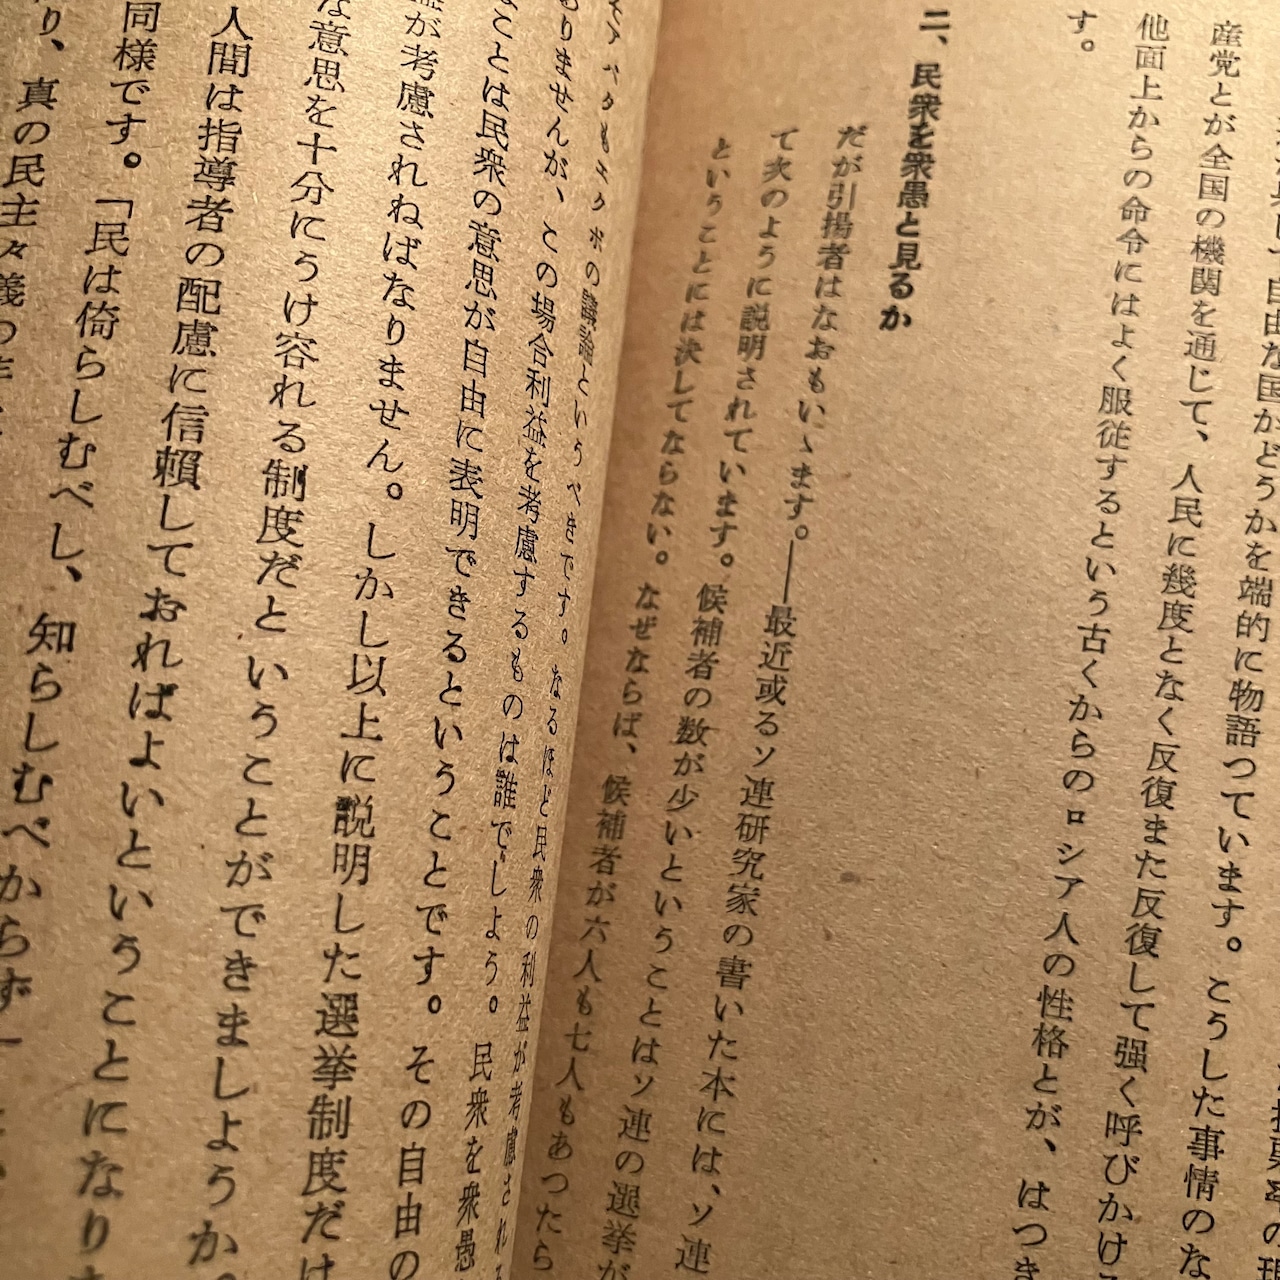 自由な国かどうかを端的に物語つています。
産党とが全国の機関を通じて、人民に幾度となく反復また反復して強く呼びかけ
他面上からの命令にはよく服従するという古くからのロシア人の性格とが、はつき
す。
二、民衆を衆愚と見るか
だが引揚者はなおもいゝます。――最近或るソ連研究家の書いた本には、ソ連
て次のように説明されています。候補者の数が少いということはソ連の選挙が
ということには決してならない。なぜならば、候補者が六人も七人もあつたら
の議論というべきです。なるほど民衆の利益が考慮され
ありませんが、この場合利益を考慮するものは誰でしよう。民衆を衆愚
ことは民衆の意思が自由に表明できるということです。その自由の
が考慮されねばなりません。しかし以上に説明した選挙制度だけ
な意思を十分にうけ容れる制度だということができましようか。
人間は指導者の配慮に信頼しておればよいということになり
同様です。「民は倚らしむべし、知らしむべからず」
り、真の民主々義の